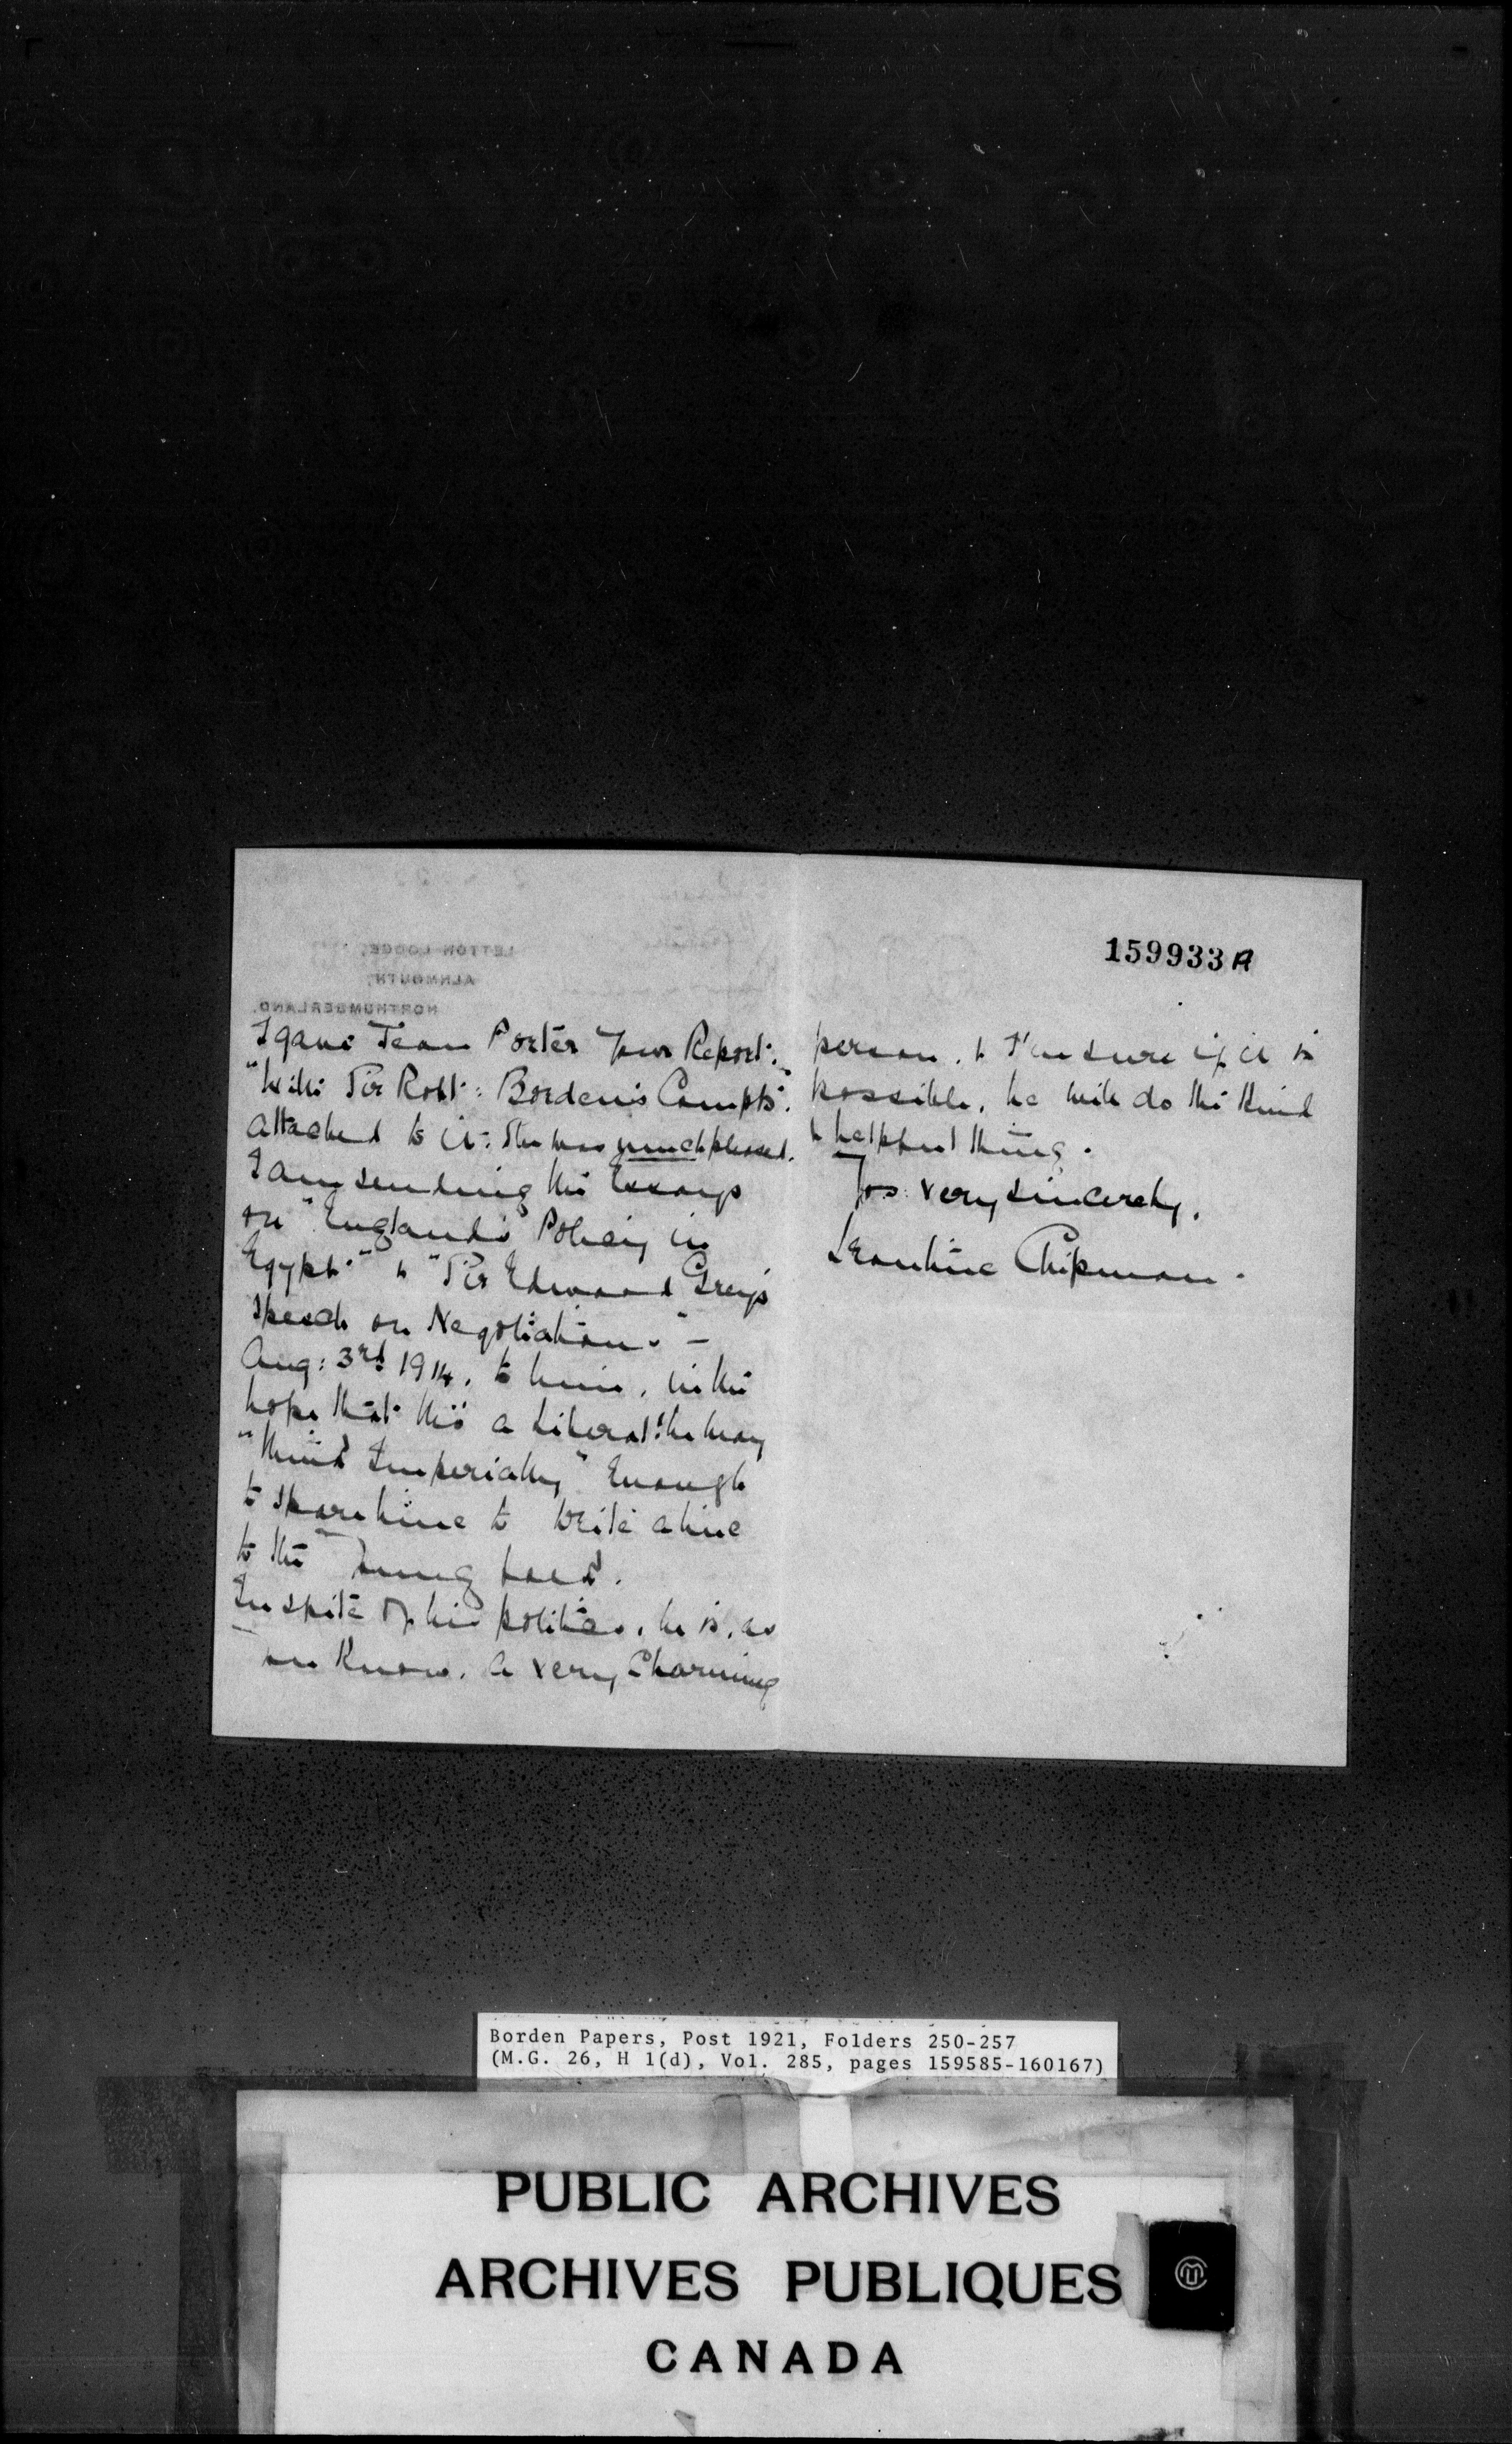 159933A
LETTON LODGE,
ALNMOUTH,
NORTHUMBERLAND.
I gave Jean Porter your Report:
"With Sir Robt: Borden's Compts".
attached to it: She was much pleased.
I am sending the Essays
on "England's Policy in
Egypt." & "Sir Edward Grey's
Speech on Negotiation." –
Aug: 3rd 1914. to him, in the
hope that tho' a Liberal! he may
"think Imperially" enough
to spare time to write a line
to the young
In spite of his politics, he is, as
you know, a very charming
person, & I'm sure if it is
possible, he will do the kind
& helpful thing.
Yrs: very sincerely,
Leontine Chipman.
Borden Papers, Post 1921, Folders 250-257
(M.G. 26, H 1(d), Vol. 285, pages 159585-160167)
PUBLIC ARCHIVES
ARCHIVES PUBLIQUES
CANADA